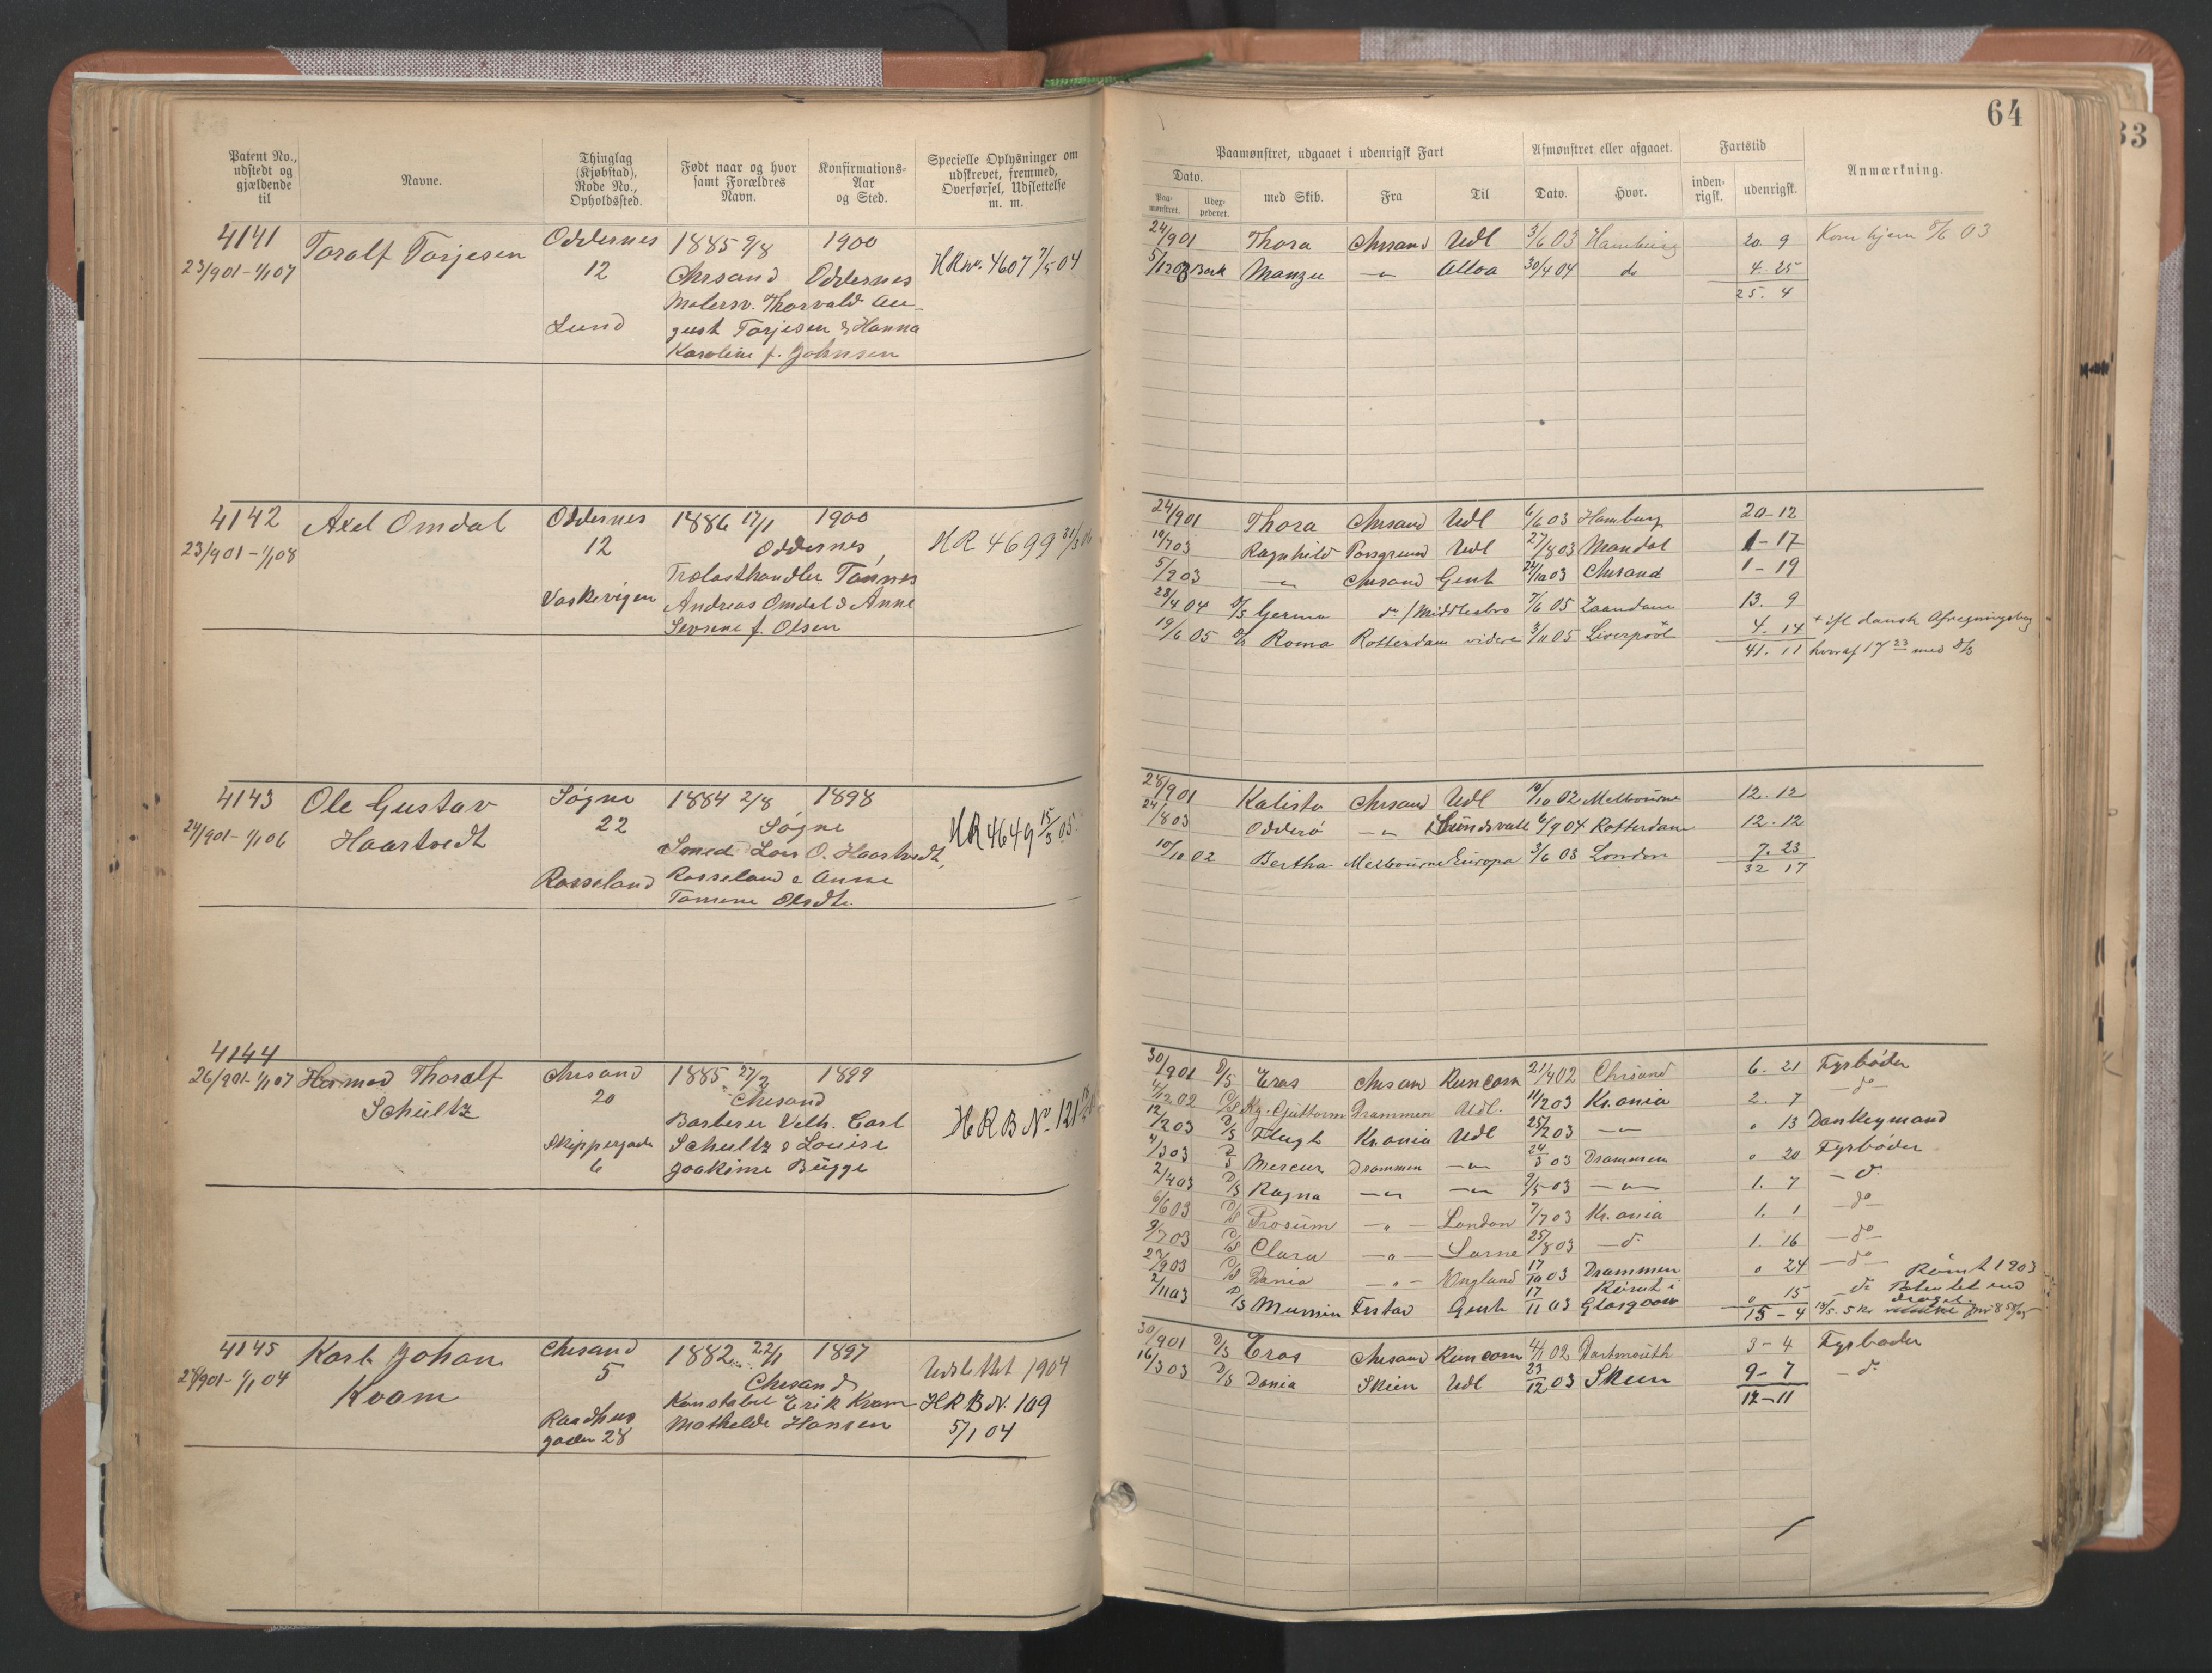 64
33
Patent No., udstedt og gjældende til
Navne.
Thinglag (Kjøbstad), Rode No., Opholdssted.
Født naar og hvor samt Forældres Navn.
Konfirmations-Aar og Sted.
Specielle Oplysninger om udskrevet, fremmed, Overførsel, Udslettelse m. m.
Paamønstret, udgaaet i udenrigsk Fart
Afmønstret eller afgaaet.
Fartstid
Anmærkning.
Dato.
Paa-mønstret.
Udex-pederet.
med Skib.
Fra
Til
Dato.
Hvor.
inden-rigsk.
udenrigsk.
4141 Toralf Torjesen Oddernes 1885 9/8 1900
23/901-1/107 12 Chrsand Oddernes HRNr. 4607 7/5 04
Malersv. Thorvald Au-
Lund gust Torjesen & Hanna
Karoline f. Johnsen
24/901 Thora Chrsand Udl 3/6 03 Hamburg 20 9 Kom hjem 8/6 03
5/1203 Bark Manzu -"- Alloa 30/4 04 do 4-25
25. 4
4142 Axel Omdal Oddernes 1886 17/1 1900
23/901-1/108 12 Oddernes HR 4699 31/3
Trælasthandler Tønnes
Vaskevigen Andreas Omdal & Anne
Severine f. Olsen
24/901 Thora Chrsand Udl 6/6 03 Hamburg 20-12
10/703 Ragnhild Porsgrund Udl 27/8 03 Mandal 1-17
5/903 -"- Chrsand Gent 24/10 03 Chrsand 1-19
28/4 04 D/S Germa do / Middlesbro 7/6 05 Zaandam 13. 9
19/6 05 D/S Roma Rotterdam videre 3/11 05 Liverpool + 4. 14 + ifl dansk Afregningsbog
41. 11 hvoraf 17 23 med D/S
4143 Ole Gustav Søgne 1884 2/8 1898
24/901-1/106 Haartvedt 22 Søgne HR 4649 15/3 05
Smed Lars O. Haartvedt,
Rosseland Rosseland & Anne
Tomine Olsdtr.
28/901 Kalisto Chrsand Udl 10/10 02 Melbourne 12. 12
24/803 Odderø -"- Sundsvall 6/9 04 Rotterdam 12. 12
10/10 02 Bertha Melbourne Europa 3/6 03 London 7. 23
32 17
4144
26/901-1/107 Harmod Thoralf Chrsand 1885 27/2 1899
Schultz 20 Chrsand
Barberer Vilh. Carl HRB No. 121
Skippergaden Schultz & Louise
6 Joakime Bügge
30/901 D/S Eros Chrsan Runcorn 21/4 02 Chrsand 6. 21 Fyrbøder
4/1202 D/S Kg. Guttorm Drammen Udl. 11/203 Kr.ania 2. 7 -do-
12/203 D/S Flugt Kr.ania Udl 25/203 -"- " 13 Dankeymand
4/303 D/S Mercur Drammen -"- 24/3 03 Drammen " 20 Fyrbøder
2/403 D/S Ragna -"- -"- 9/5 03 -"- 1. 7 -do
6/603 D/S Prosum -"- London 7/7 03 Kr.ania 1. 1 -do-
9/703 D/S Clara -"- Larne 25/8 03 -do- 1. 16 -do-
23/903 D/S Dania -"- England 17/10 03 Drammen " 24 -do- Rømt 1903
2/1103 D/S Mummin Frstad Gent 17/11 03 Rømt i Glasgow " 15 do Patentet ind
15-4
4145 Karl Johan Chrsand 1882 22/1 1897
28/901-1/1 04 Kvam 5 Chrsand Udslettet 1904
Konstabel Erik Kvam HRB N. 109
Raadhus Mathilde Hansen 5/1 04
gaden 28
30/901 D/S Eros Chrsand Runcorn 4/1 02 Dartmouth 3-4 Fyrbøder
16/303 D/S Dania Skien Udl 23/12 03 Skien 9-7 -do
12-11